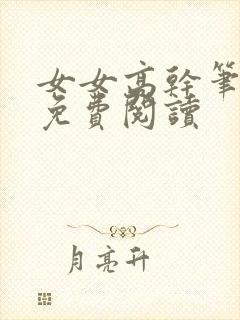 女女高幹筆
免費閱讀
月亮升